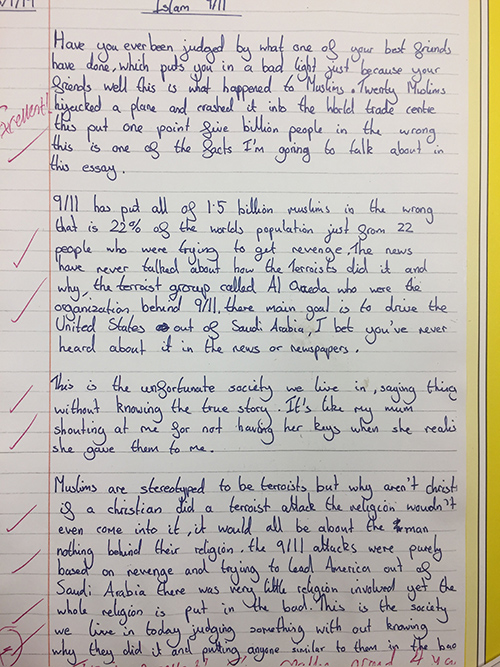 Islam 9/11
Have you ever been judged by what one of your best friends
have done, which puts you in a bad light just because your
friends well this is what happened to Muslims. Twenty Muslims
higucked a plane and crashed it into the World trade centre
this put one point five billion people in the wrong
this is one of the facts I'm going to talk about in
this essay.
9/11 has put all of 1.5 billion muslims in the wrong
that is 22% of the worlds population just from 22
people who were trying to get revenge. The news
have never talked about how the Terroists did it and
why, the terroist group called Al Qaeda who were the
organization behind 9/11. there main goal is to drive the
United States out of Saudi Arabia, I bet you've never
heard about it in the news or newspapers.
This is the unfortunate society we live in, saying thing
without knowing the true story. It's like my mum
shouting at me for not having her keys when she realis
she gave them to me.
Muslims are stereotyped to be terroists but why aren't christ
if a christian did a terroist attack the religion woudn't
even come into it, it would all be about the man
nothing behind their religion. the 9/11 attacks were purely
based on revenge and trying to lead America out of
Saudi Arabia there was very little religion involved yet the
whole religion is put in the bad. This is the society
we live in today judging something with out knowing
why they did it and putting anyone similar to them in the bad